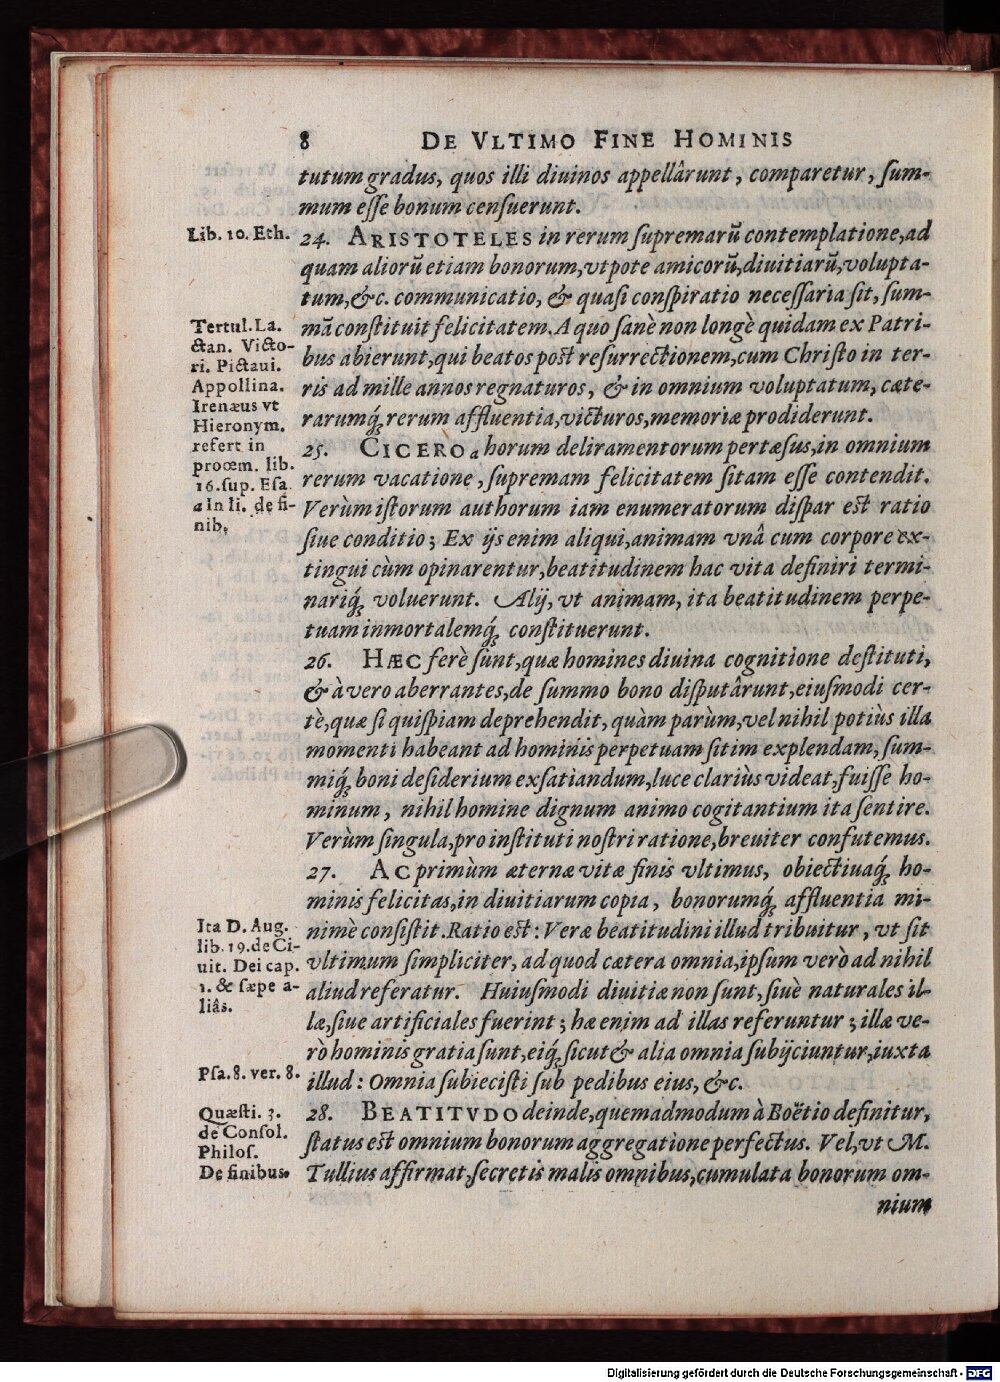 8 DE VLTIMO FINE HOMINIS
tutum gradus, quos illi diuinos appellârunt, comparetur, ſum-
mum eſſe bonum cenſuerunt.
Lib. 10. Eth.
24. ARISTOTELES in rerum ſupremarũ contemplatione, ad
quam aliorũ etiam bonorum, vtpote amicorũ, diuitiarũ, volupta-
tum, &c. communicatio, & quaſi conſpiratio neceſſaria ſit, ſum-
mã conſtituit felicitatem. A quo ſanè non longè quidam ex Patri-
bus abierunt, qui beatos poſt reſurrectionem, cum Chriſto in ter-
ris ad mille annos regnaturos, & in omnium voluptatum, cæte-
rarumq́; rerum affluentia, victuros, memoriæ prodiderunt.
Tertul. La.
ctan. Victo-
ri. Pictaui.
Appollina.
Irenæus vt
Hieronym.
refert in
proœm. lib.
16. ſup. Eſa.
a In li. de fi-
nib.
25. CICERO a horum deliramentorum pertæſus, in omnium
rerum vacatione, ſupremam felicitatem ſitam eſſe contendit.
Verùm iſtorum authorum iam enumeratorum diſpar eſt ratio
ſiue conditio; Ex ijs enim aliqui, animam vnâ cum corpore ex-
tingui cùm opinarentur, beatitudinem hac vita definiri termi-
nariq́; voluerunt. Alij, vt animam, ita beatitudinem perpe-
tuam inmortalemq́; conſtituerunt.
26. HÆC ferè ſunt, quæ homines diuina cognitione deſtituti,
& à vero aberrantes, de ſummo bono diſputârunt, eiuſmodi cer-
tè, quæ ſi quiſpiam deprehendit, quàm parùm, vel nihil potiùs illa
momenti habeant ad hominis perpetuam ſitim explendam, ſum-
miq́; boni deſiderium exſatiandum, luce clariùs videat, fuiſſe ho-
minum, nihil homine dignum animo cogitantium ita ſentire.
Verùm ſingula, pro inſtituti noſtri ratione, breuiter confutemus.
27. AC primùm æternæ vitæ finis vltimus, obiectiuaq́; ho-
minis felicitas, in diuitiarum copia, bonorumq́; affluentia mi-
nimè conſiſtit. Ratio eſt: Veræ beatitudini illud tribuitur, vt ſit
vltimum ſimpliciter, ad quod cætera omnia, ipſum verò ad nihil
aliud referatur. Huiuſmodi diuitiæ non ſunt, ſiuè naturales il-
læ, ſiue artificiales fuerint; hæ enim ad illas referuntur; illæ ve-
rò hominis gratia ſunt, eiq́; ſicut & alia omnia ſubijciuntur, iuxta
illud: Omnia ſubieciſti ſub pedibus eius, &c.
Ita D. Aug.
lib. 19. de Ci-
uit. Dei cap.
1. & ſæpe a-
liâs.
Pſa. 8. ver. 8.
28. BEATITVDO deinde, quemadmodum à Boëtio definitur,
ſtatus eſt omnium bonorum aggregatione perfectus. Vel, vt M.
Tullius affirmat, ſecretis malis omnibus, cumulata bonorum om-
nium
Quæſti. 3.
de Conſol.
Philoſ.
De finibus.
Digitalisierung gefördert durch die Deutsche Forschungsgemeinschaft - DFG